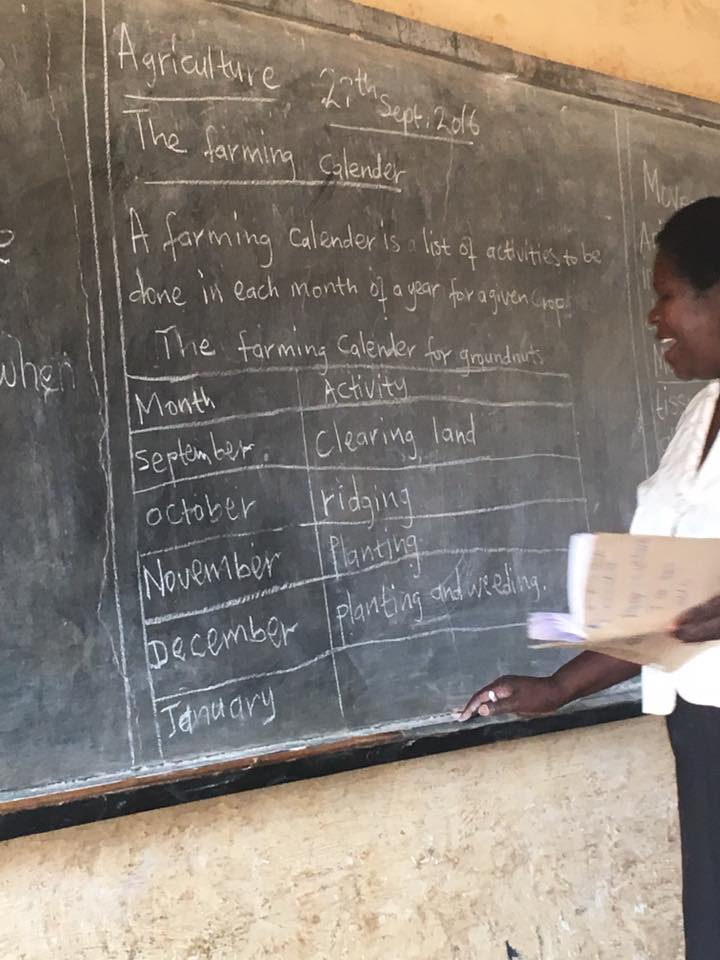 Agriculture 27th Sept. 2016
The farming Calender
A farming Calender is a list of activities to be
done in each month of a year for a given crop
The farming Calender for groundnuts
Month Activity
September. Clearing land
October ridging
November Planting
December planting and weeding.
January
when